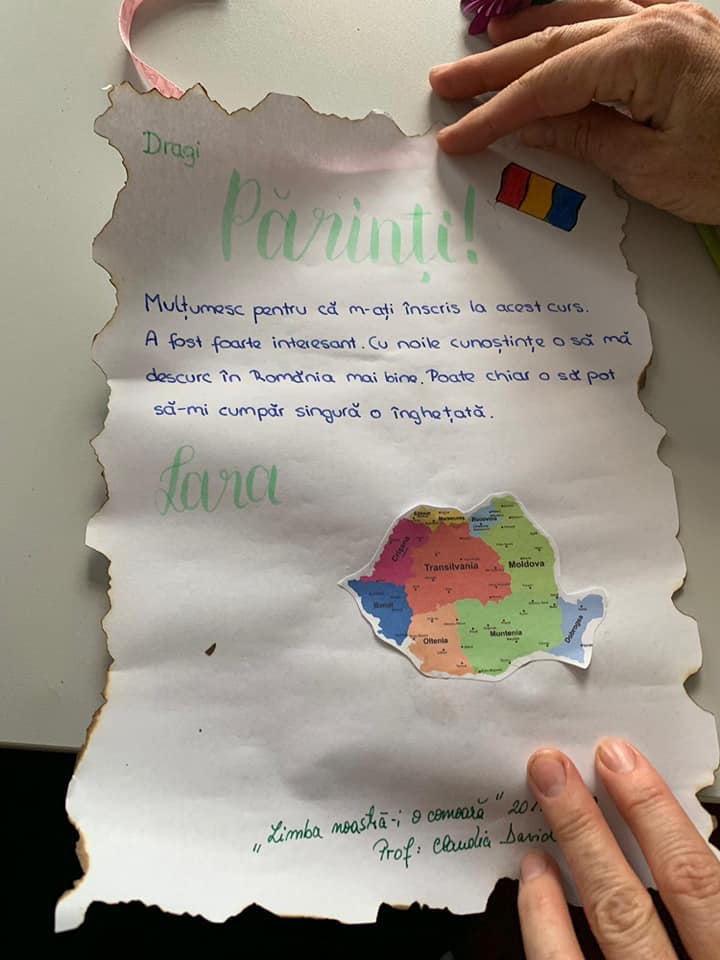 Dragi
Părinți!
Mulțumesc pentru că m-ați înscris la acest curs.
A fost foarte interesant. Cu noile cunoștințe o să mă
descurc în România mai bine. Poate chiar o să pot
să-mi cumpăr singură o înghețată.
Lara
Maramureș
Bucovina
Crișana
Transilvania
Moldova
Banat
Oltenia
Muntenia
Dobrogea
„Limba noastră-i o comoară" 201
Prof: Claudia David